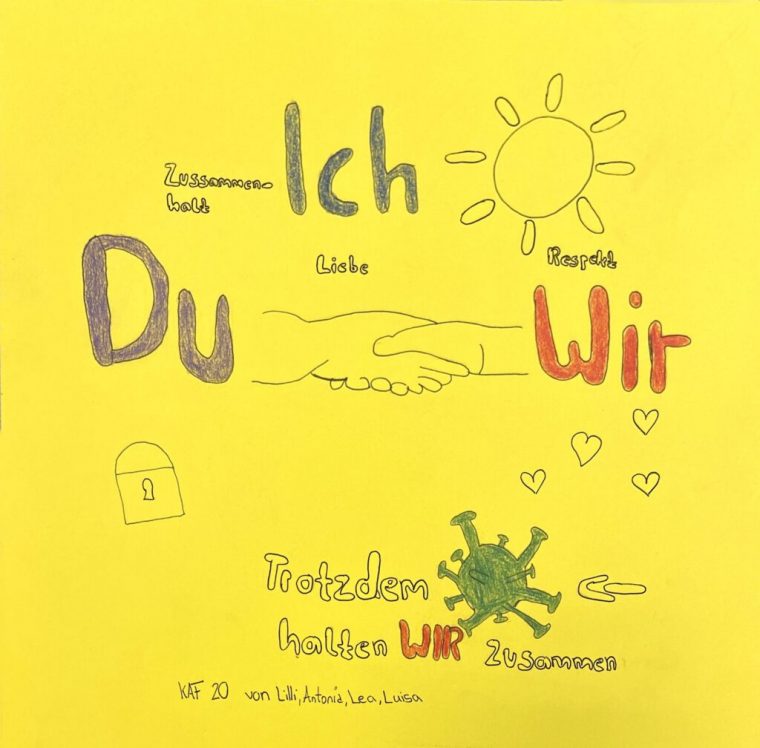 Ich
Zussammen-
halt
Liebe
Respekt
Du
Wir
Trotzdem
halten WIR Zusammen
KAF 20 von Lilli, Antonia, Lea, Luisa